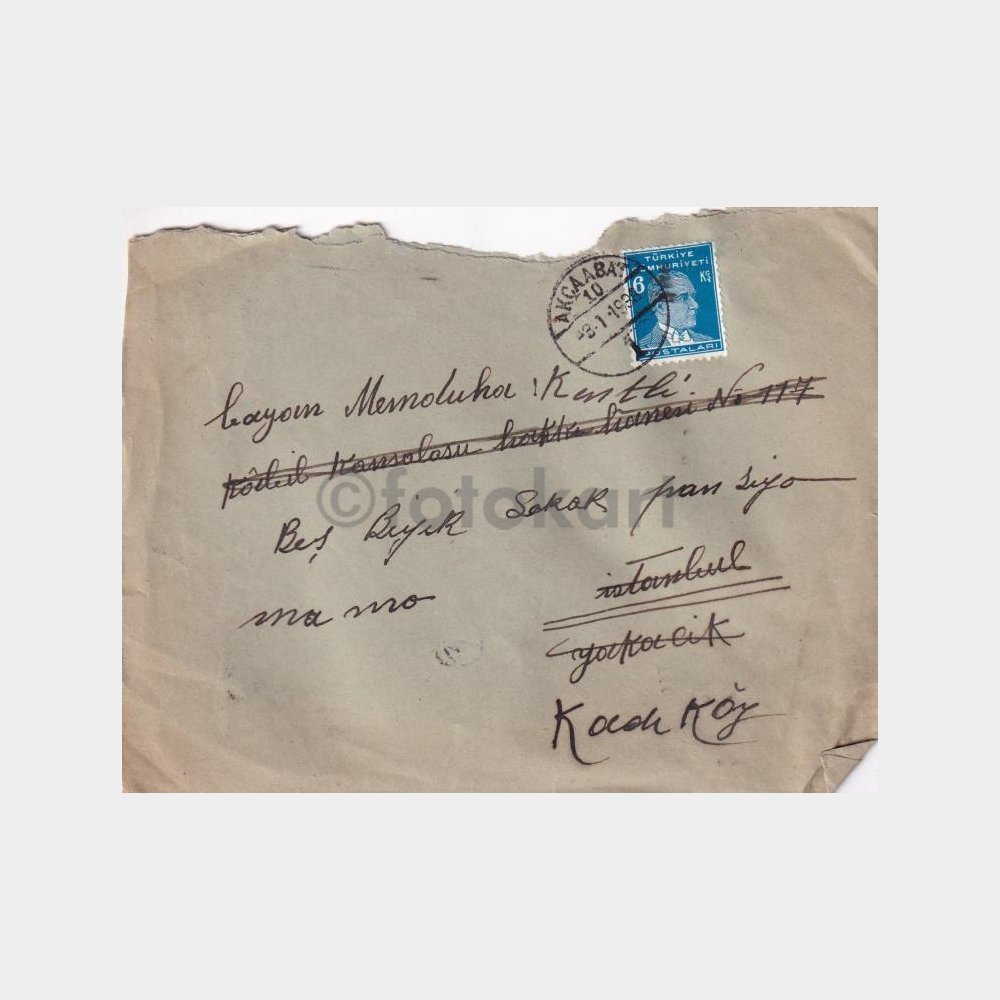 TÜRKİYE
CUMHURİYETİ
6 Kş
POSTALARI
AKÇAABAT
10
-8-1-193
bayan Memduha Kastli
Kansolosu hakkı hanesi No 117
Beş Biyik Sokak pansiyo
ma mo
istanbul
yakacik
Kadı Köy
©fotokart